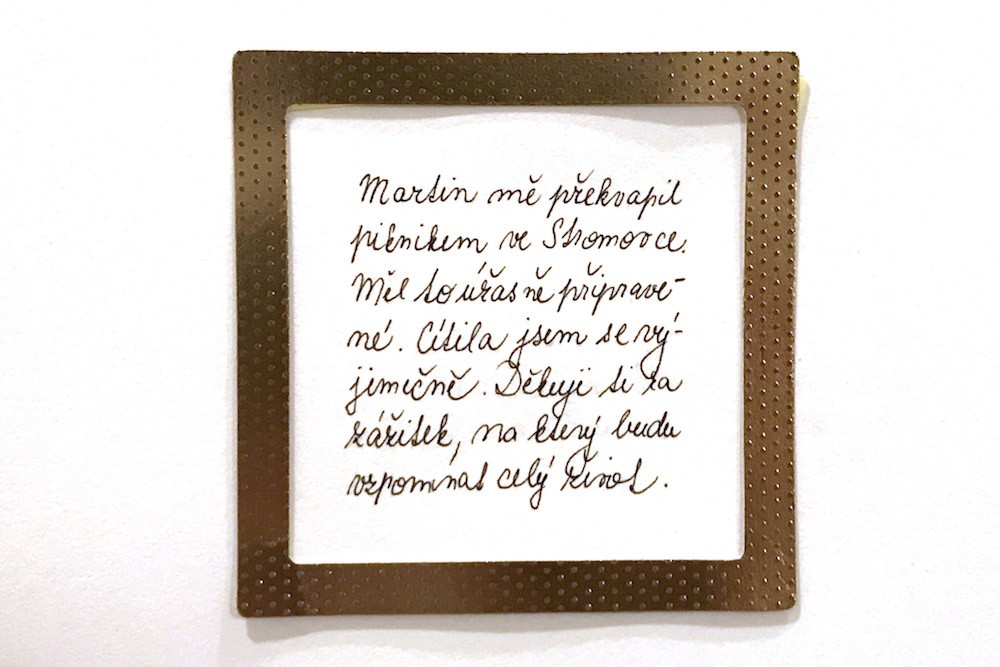 Martin mě překvapil
piknikem ve Stromovce.
Měl to úžasně připrave-
né. Cítila jsem se vý-
jimečně. Děkuji ti za
zážitek, na který budu
vzpomínat celý život.